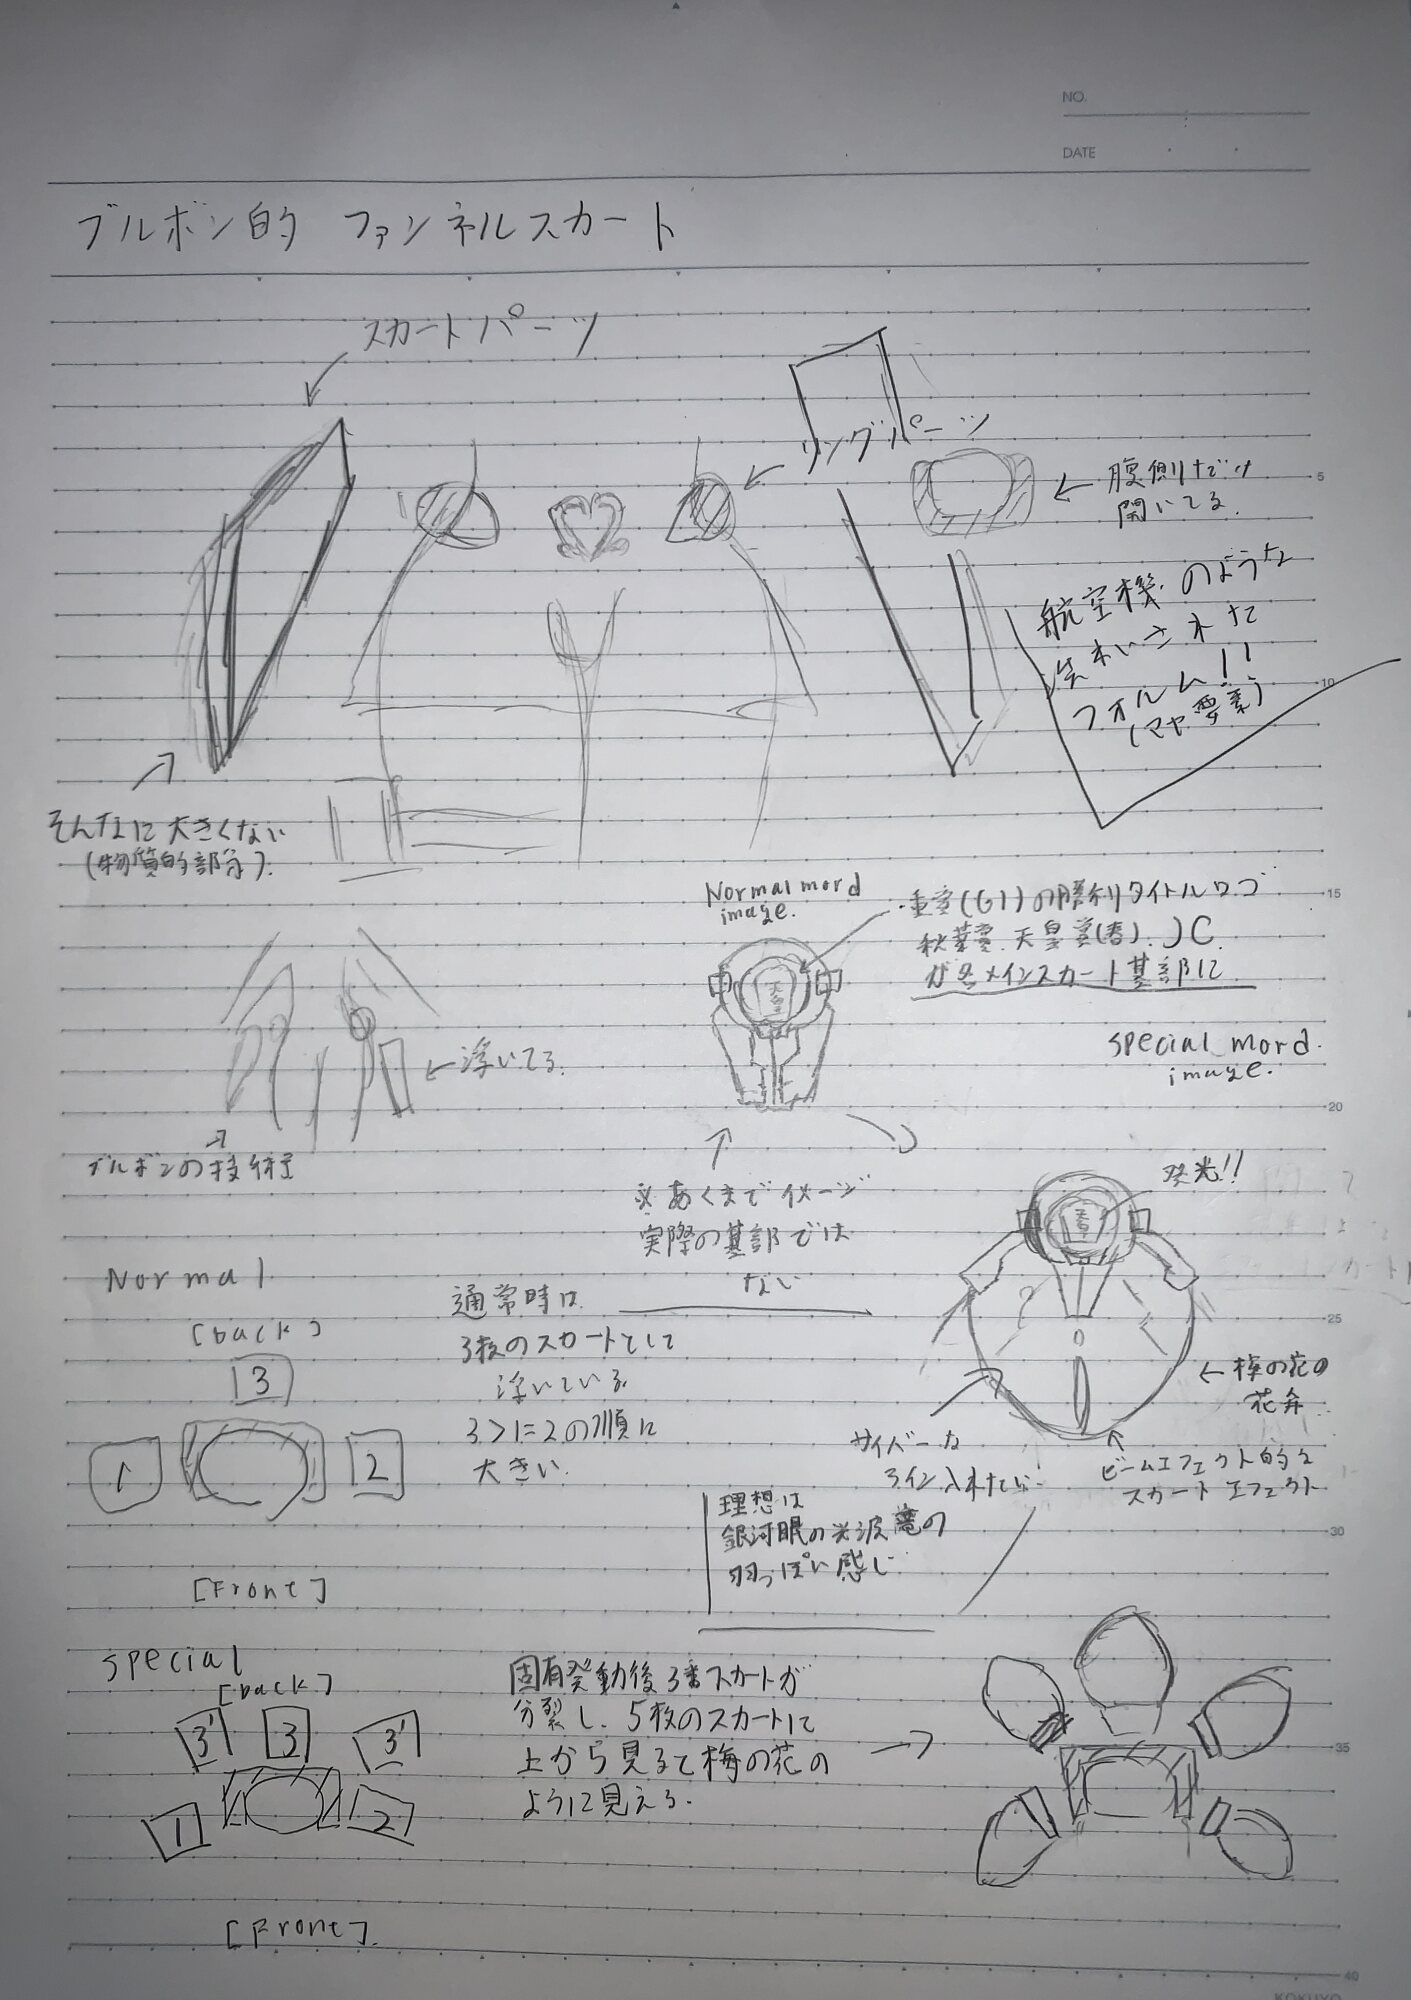 NO.
DATE
ブルボン的 ファンネルスカート
スカートパーツ
リングパーツ
腹側だけ
開いてる.
航空機のような
された
フォルム!!
(マヤ要素)
そんなに大きくない
(物質的部分).
Normal mord
image.
・重賞(G1)の勝利タイトルロゴ
秋華賞. 天皇賞(春). JC.
が各メインスカート基部に
浮いてる.
ブルボンの技術
special mord.
image.
※あくまでイメージ
実際の基部では
ない
発光!!
Normal
[back]
3
1
2
[Front]
通常時は
3枚のスカートとして
浮いている.
3>1=2の順に
大きい.
←梅の花の
花弁
サイバーな
ライン入れたい!
ビームエフェクト的な
スカートエフェクト
理想は
銀河眼の光波竜の
羽っぽい感じ.
special
[back]
3'
3
3'
1
2
[Front].
固有発動後3番スカートが
分裂し、5枚のスカートに
上から見ると梅の花の
ように見える.
5
10
15
20
25
30
35
40
KOKUYO